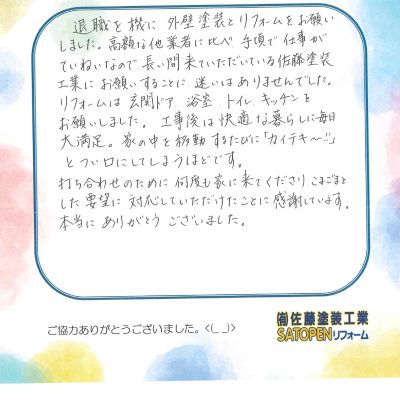 退職を機に 外壁塗装とリフォームをお願い
しました。高額な他業者に比べ 手頃で仕事が
ていねいなので 長い間来ていただいている佐藤塗装
工業に お願いすることに 迷いはありませんでした。
リフォームは 玄関ドア、浴室、トイレ、キッチンを
お願いしました。工事後は 快適な暮らしに毎日
大満足。家の中を移動するたびに「カイテキ〜!!」
と つい口にしてしまうほどです。
打ち合わせのために 何度も家に来てくださり こまごまと
した要望に 対応していただけたことに 感謝しています。
本当に ありがとう ございました。
ご協力ありがとうございました。<(_ _)>
(有)佐藤塗装工業
SATOPENリフォーム